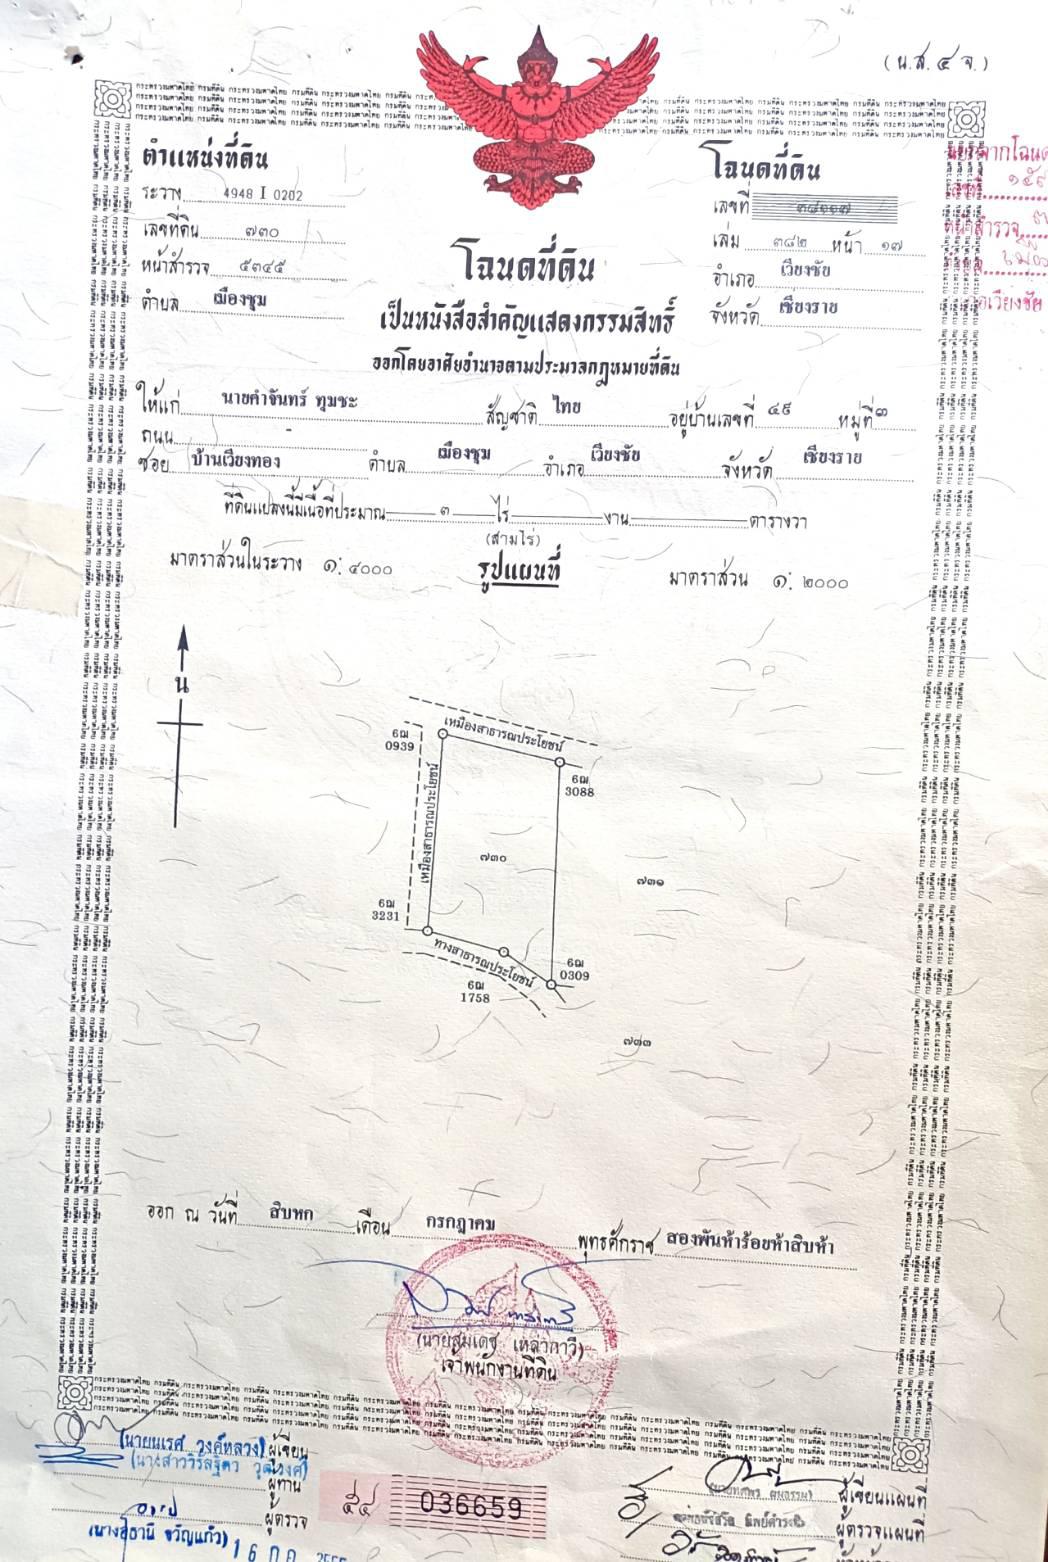 (น.ส.๔ จ.)
ตำแหน่งที่ดิน
ระวาง 4948 I 0202
เลขที่ดิน ๗๓๐
หน้าสำรวจ ๕๓๔๕
ตำบล เมืองชุม
โฉนดที่ดิน
เลขที่ ๓๘๑๑๗
เล่ม ๓๘๒ หน้า ๑๗
อำเภอ เวียงชัย
จังหวัด เชียงราย
โฉนดที่ดิน
เป็นหนังสือสำคัญแสดงกรรมสิทธิ์
ออกโดยอาศัยอำนาจตามประมวลกฎหมายที่ดิน
ให้แก่ นายคำจันทร์ ทุมชะ สัญชาติ ไทย อยู่บ้านเลขที่ ๔๙ หมู่ที่ ๓
ถนน -
ซอย บ้านเวียงทอง ตำบล เมืองชุม อำเภอ เวียงชัย จังหวัด เชียงราย
ที่ดินแปลงนี้มีเนื้อที่ประมาณ ๓ ไร่ — งาน — ตารางวา
(สามไร่)
มาตราส่วนในระวาง ๑: ๔๐๐๐ รูปแผนที่ มาตราส่วน ๑: ๒๐๐๐
น
เหมืองสาธารณประโยชน์
6ฌ
0939
6ฌ
3088
เหมืองสาธารณประโยชน์
๗๓๐
๗๓๑
6ฌ
3231
ทางสาธารณประโยชน์
6ฌ
0309
6ฌ
1758
๗๓๓
ออก ณ วันที่ สิบหก เดือน กรกฎาคม พุทธศักราช สองพันห้าร้อยห้าสิบห้า
(นายสมเดช เหล่ากาวี)
เจ้าพนักงานที่ดิน
(นายนเรศ วงศ์หลวง) ผู้เขียน
ผู้ทาน
ผู้ตรวจ
(นางสุธานี ขวัญแก้ว)
036659
ผู้เขียนแผนที่
ผู้ตรวจแผนที่